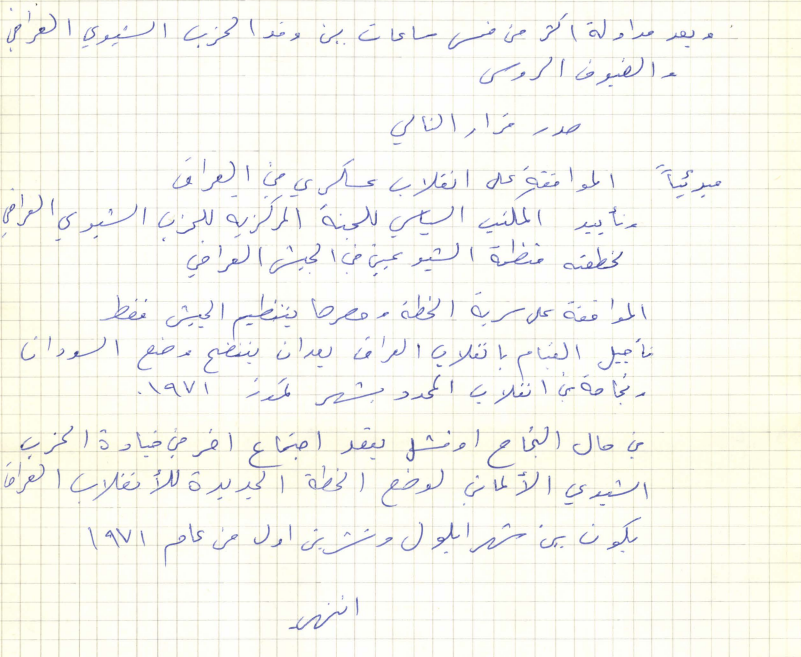 وبعد مداولة اكثر من خمس ساعات بين وفد الحزب الشيوعي العراقي
والضيوف الروس
صدر قرار التالي
مبدئياً الموافقة على انقلاب عسكري في العراق
وتأييد المكتب السياسي للجنة المركزية للحزب الشيوعي العراقي
لخطته منظمة الشيوعيين في الجيش العراقي
الموافقة على سرية الخطة وحصرها بتنظيم الجيش فقط
تأجيل القيام بانقلاب العراق بعد ان يتضح وضع السودان
ونجاحه في انقلاب المحدد بشهر تموز ١٩٧١.
في حال النجاح او فشل يعقد اجتماع اخر في قيادة الحزب
الشيوعي الألماني لوضع الخطة الجديدة للأنقلاب العراق
يكون بين شهر ايلول وتشرين اول من عام ١٩٧١
انتهى